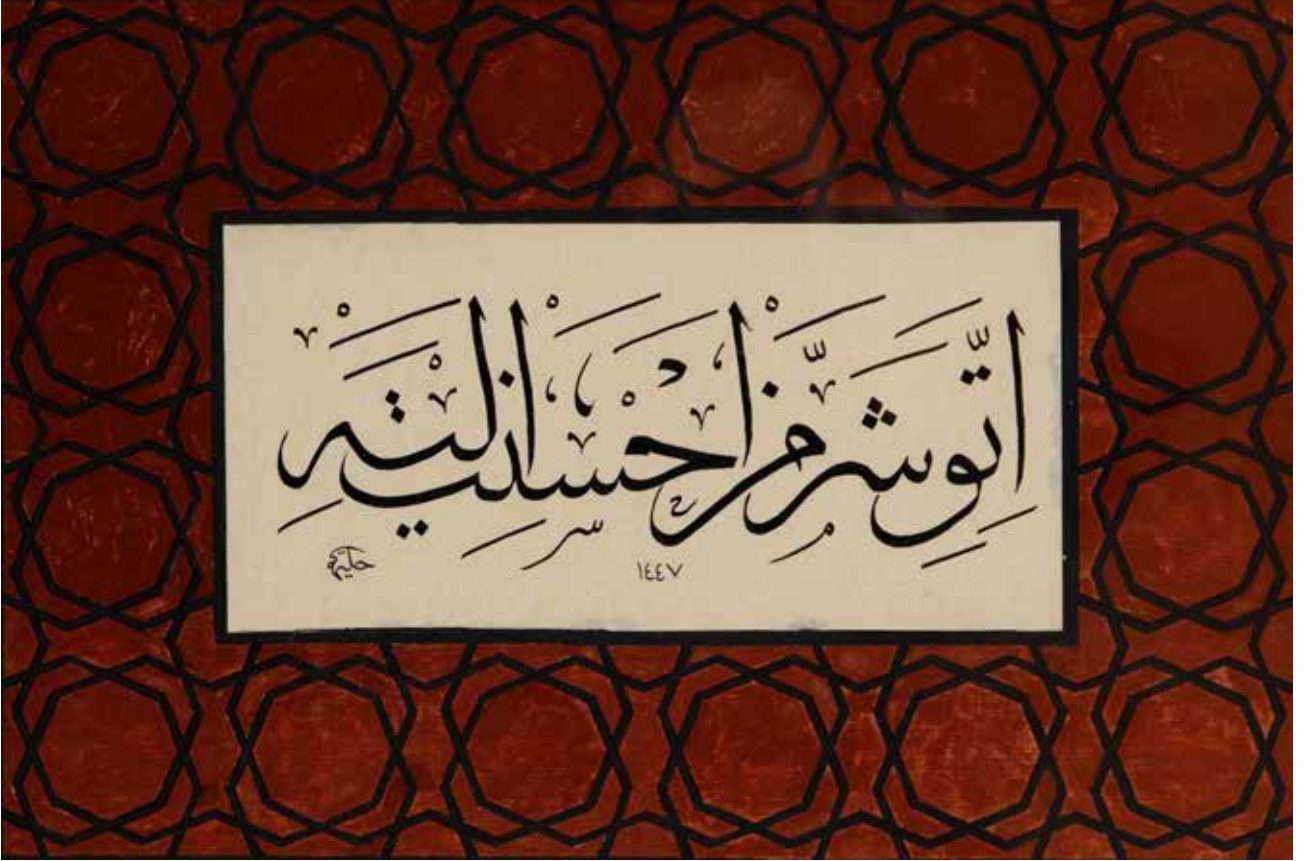 اِتَّقِ شَرَّ مَنْ اَحْسَنْتَ اِلَيْهِ
١٤٤٧